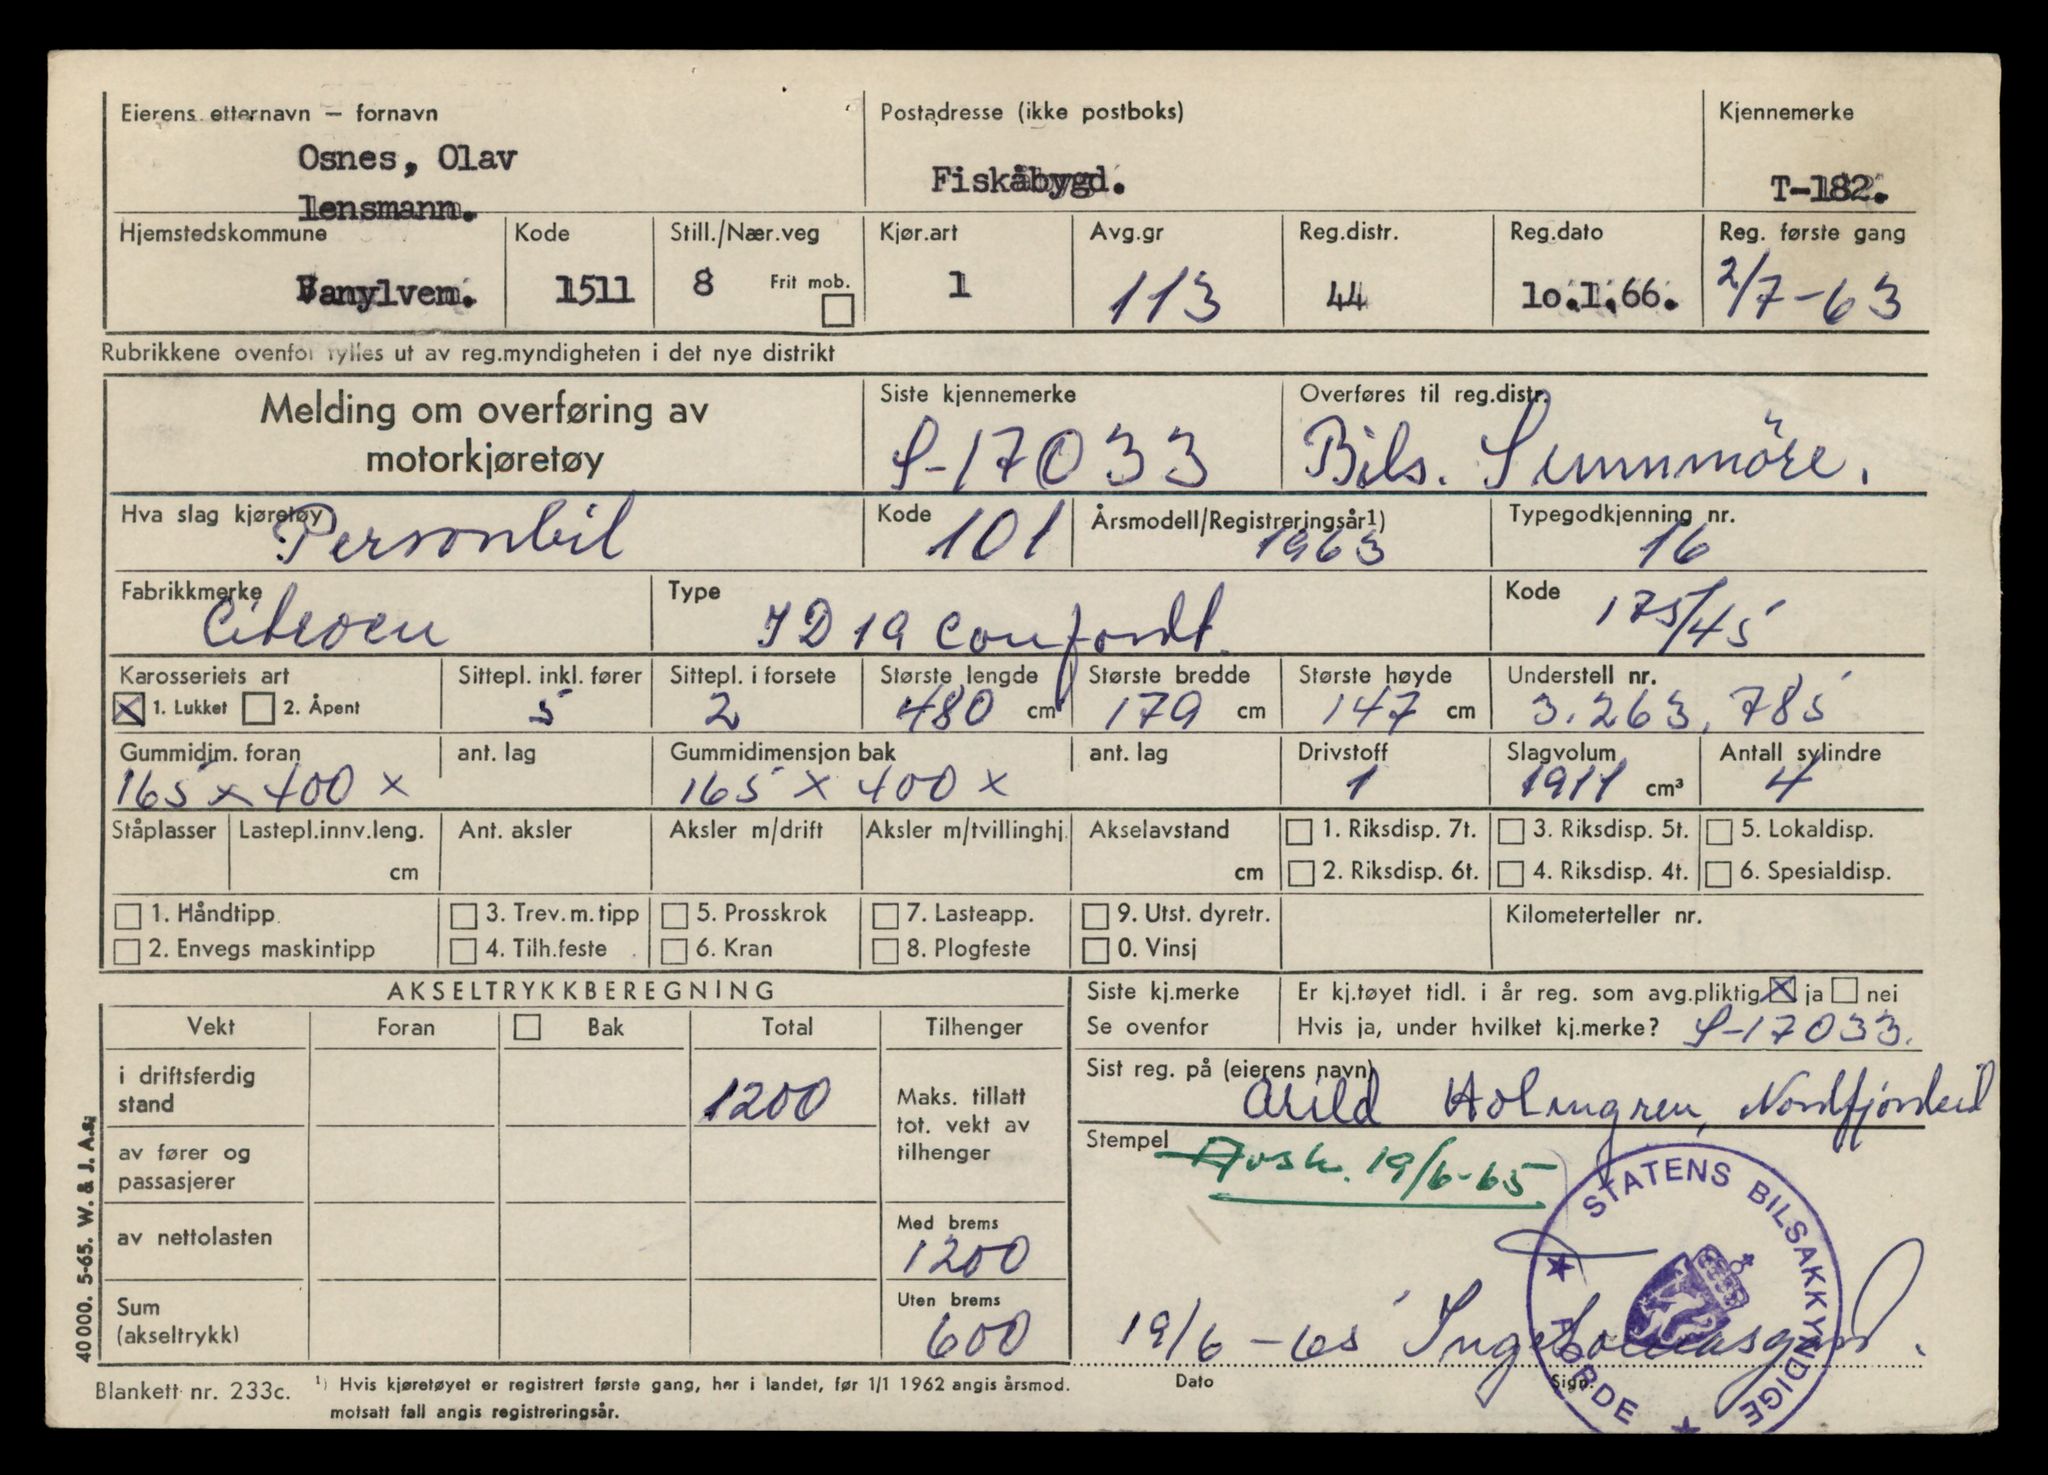 Eierens etternavn — fornavn Postadresse (ikke postboks) Kjennemerke
Osnes, Olav Fiskåbygd. T-182.
lensmann.
Hjemstedskommune Kode Still./Nær.veg Kjør.art Avg.gr Reg.distr. Reg.dato Reg. første gang
Vanylven. 1511 8 Frit mob. 1 113 44 10.1.66. 2/7-63
Rubrikkene ovenfor fylles ut av reg.myndigheten i det nye distrikt
Melding om overføring av motorkjøretøy Siste kjennemerke Overføres til reg.distr.
S-17033 Bils. Sunnmöre.
Hva slag kjøretøy Kode Årsmodell/Registreringsår1) Typegodkjenning nr.
Personbil 101 1963 16
Fabrikkmerke Type Kode
Citroen ID 19 Confordt. 175/45
Karosseriets art Sittepl. inkl. fører Sittepl. i forsete Største lengde Største bredde Største høyde Understell nr.
1. Lukket 2. Åpent 5 2 480 cm 179 cm 147 cm 3.263.785
Gummidim. foran ant. lag Gummidimensjon bak ant. lag Drivstoff Slagvolum Antall sylindre
165 x 400 x 165 x 400 x 1 1911 cm³ 4
Ståplasser Lastepl.innv.leng. Ant. aksler Aksler m/drift Aksler m/tvillinghj. Akselavstand 1. Riksdisp. 7t. 3. Riksdisp. 5t. 5. Lokaldisp.
cm cm 2. Riksdisp. 6t. 4. Riksdisp. 4t. 6. Spesialdisp.
1. Håndtipp 3. Trev.m.tipp 5. Prosskrok 7. Lasteapp. 9. Utst. dyretr. Kilometerteller nr.
2. Envegs maskintipp 4. Tilh.feste 6. Kran 8. Plogfeste 0. Vinsj
AKSELTRYKKBEREGNING
Vekt Foran Bak Total Tilhenger
i driftsferdig stand 1200 Maks. tillatt tot. vekt av tilhenger
av fører og passasjerer
av nettolasten Med brems
1200
Sum (akseltrykk) Uten brems
600
Siste kj.merke Er kj.tøyet tidl. i år reg. som avg.pliktig ja nei
Se ovenfor Hvis ja, under hvilket kj.merke? S-17033.
Sist reg. på (eierens navn)
Arild Holmgren, Nordfjordeid
Stempel
Avsk. 19/6-65
STATENS BILSAKKYNDIGE
FØRDE
19/6-65
Dato Sign.
40 000. 5-65. W. & J. A.s.
Blankett nr. 233c. 1) Hvis kjøretøyet er registrert første gang, her i landet, før 1/1 1962 angis årsmod.
motsatt fall angis registreringsår.